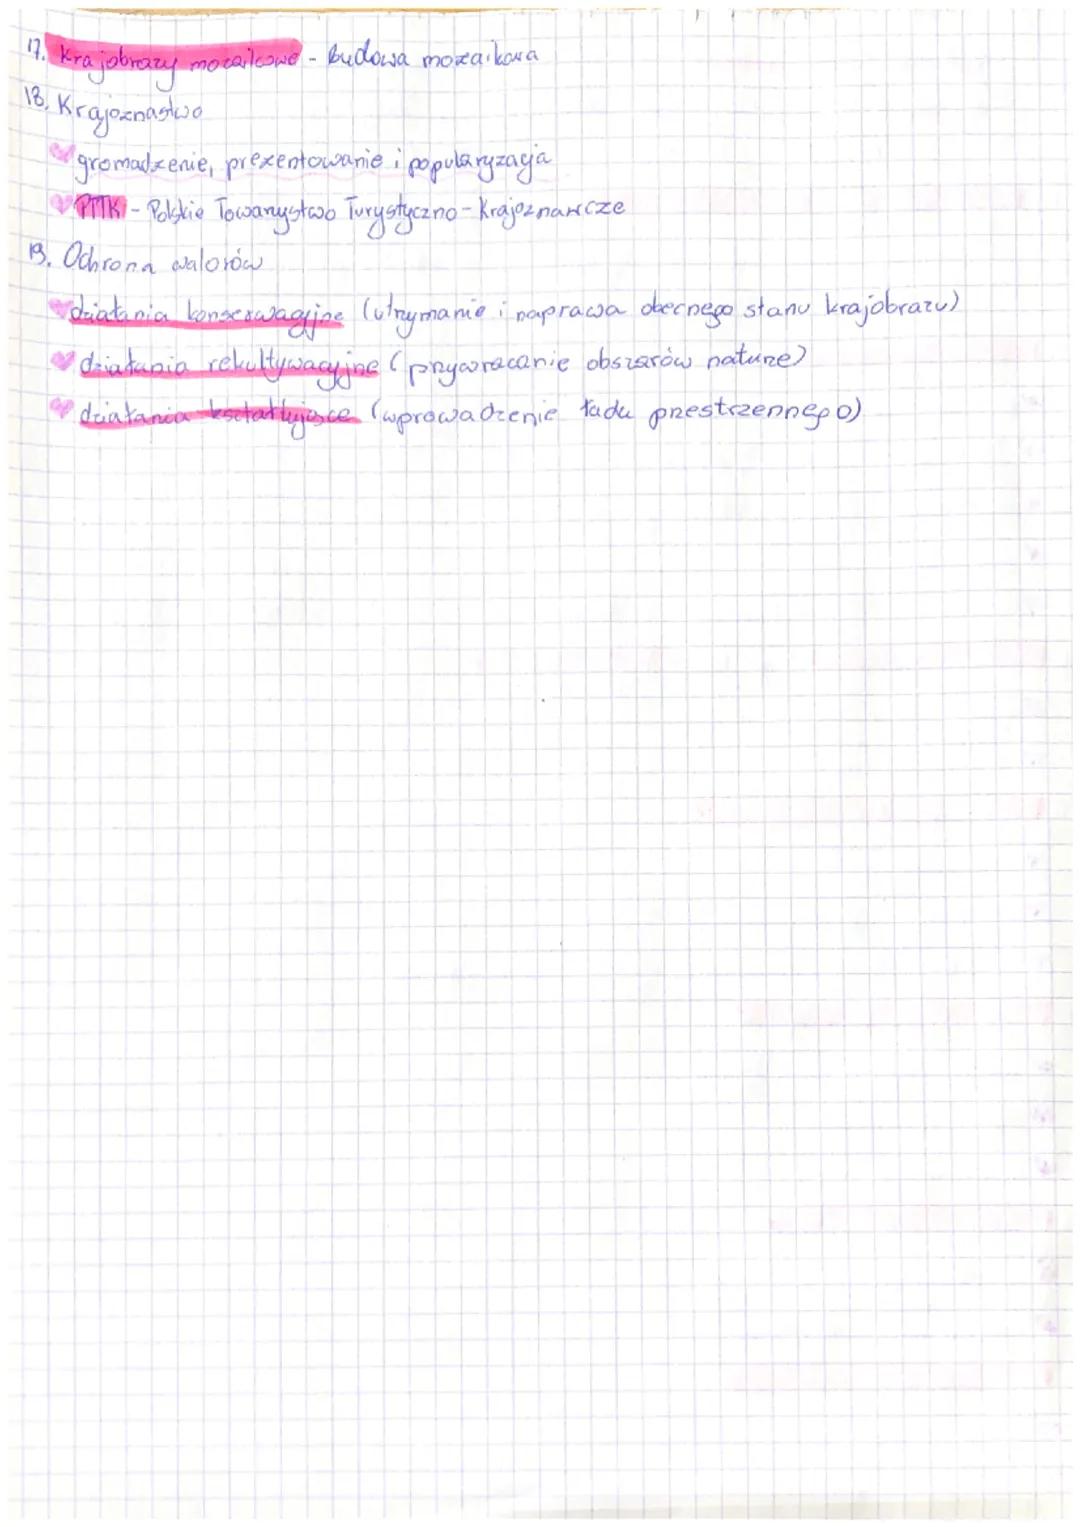 17. Krajobrazy mozaikowe - Budowa mozaikowa
18. Krajoznastwo
gromadzenie, prezentowanie i popularyzacja
PTTK - Polskie Towarzystwo Turystyczno-Krajoznawcze
19. Ochrona walorów
działania konserwacyjne (utrzymanie i naprawa obecnego stanu krajobrazu)
działania rekultywacyjne (przywracanie obszarów naturze)
działania kształtujące (wprowadzenie ładu przestrzennego)